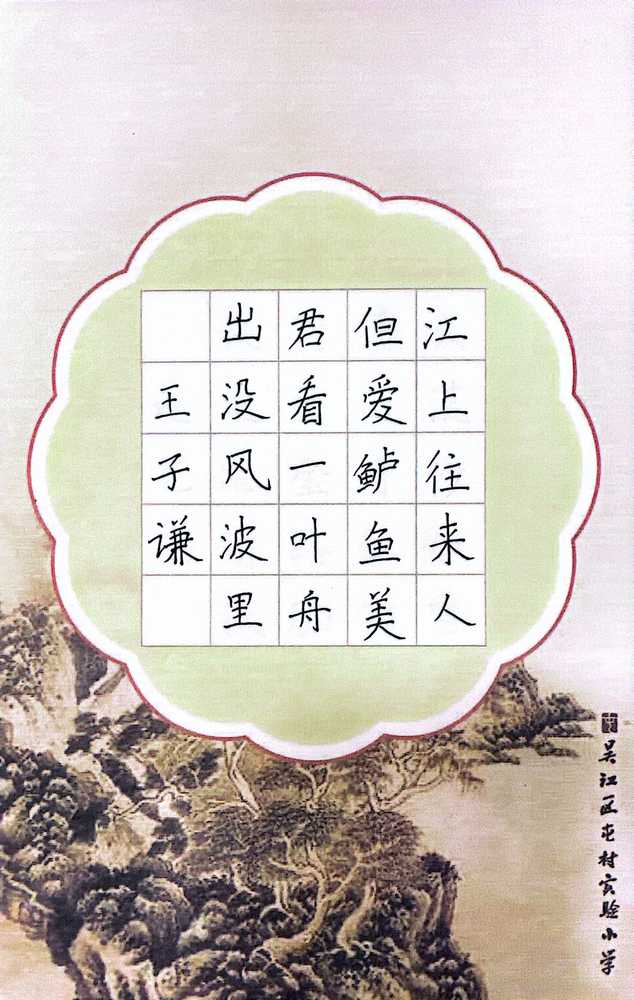 江上往来人
但爱鲈鱼美
君看一叶舟
出没风波里
王子谦
吴江区屯村实验小学